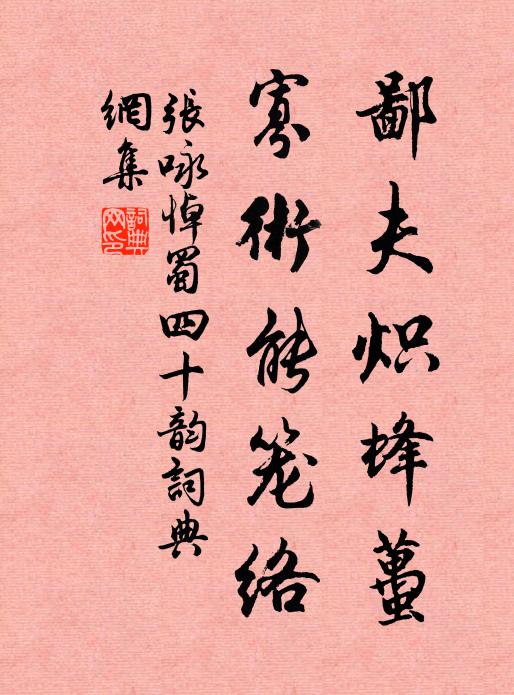 鄙夫炽蜂虿
寡術能笼络
張咏悼蜀四十韵詞典
網集
詞典網印